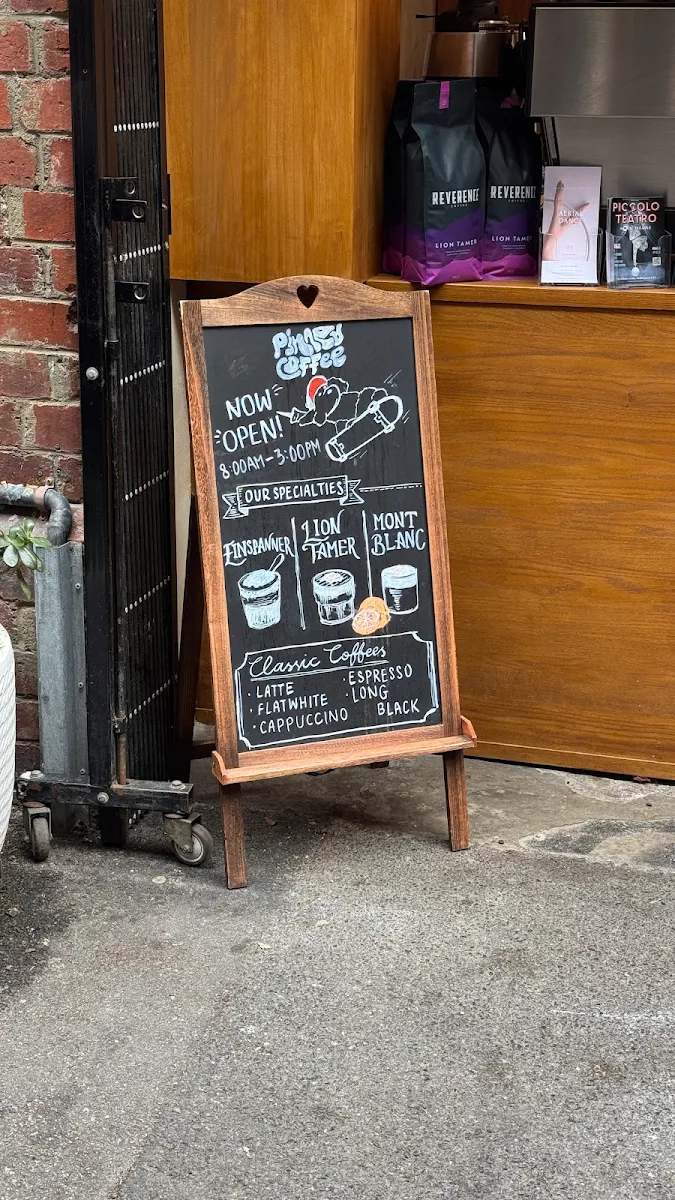 REVERENCE
COFFEE
LION TAMER
REVERENCE
LION TAMER
AERIAL
DANCE
PICCOLO
TEATRO
COFFEE
NOW
OPEN!
8:00AM-3:00PM
OUR SPECIALTIES
EINSPANNER
LION
TAMER
MONT
BLANC
Classic Coffees
· LATTE
· FLATWHITE
· CAPPUCCINO
· ESPRESSO
· LONG
BLACK